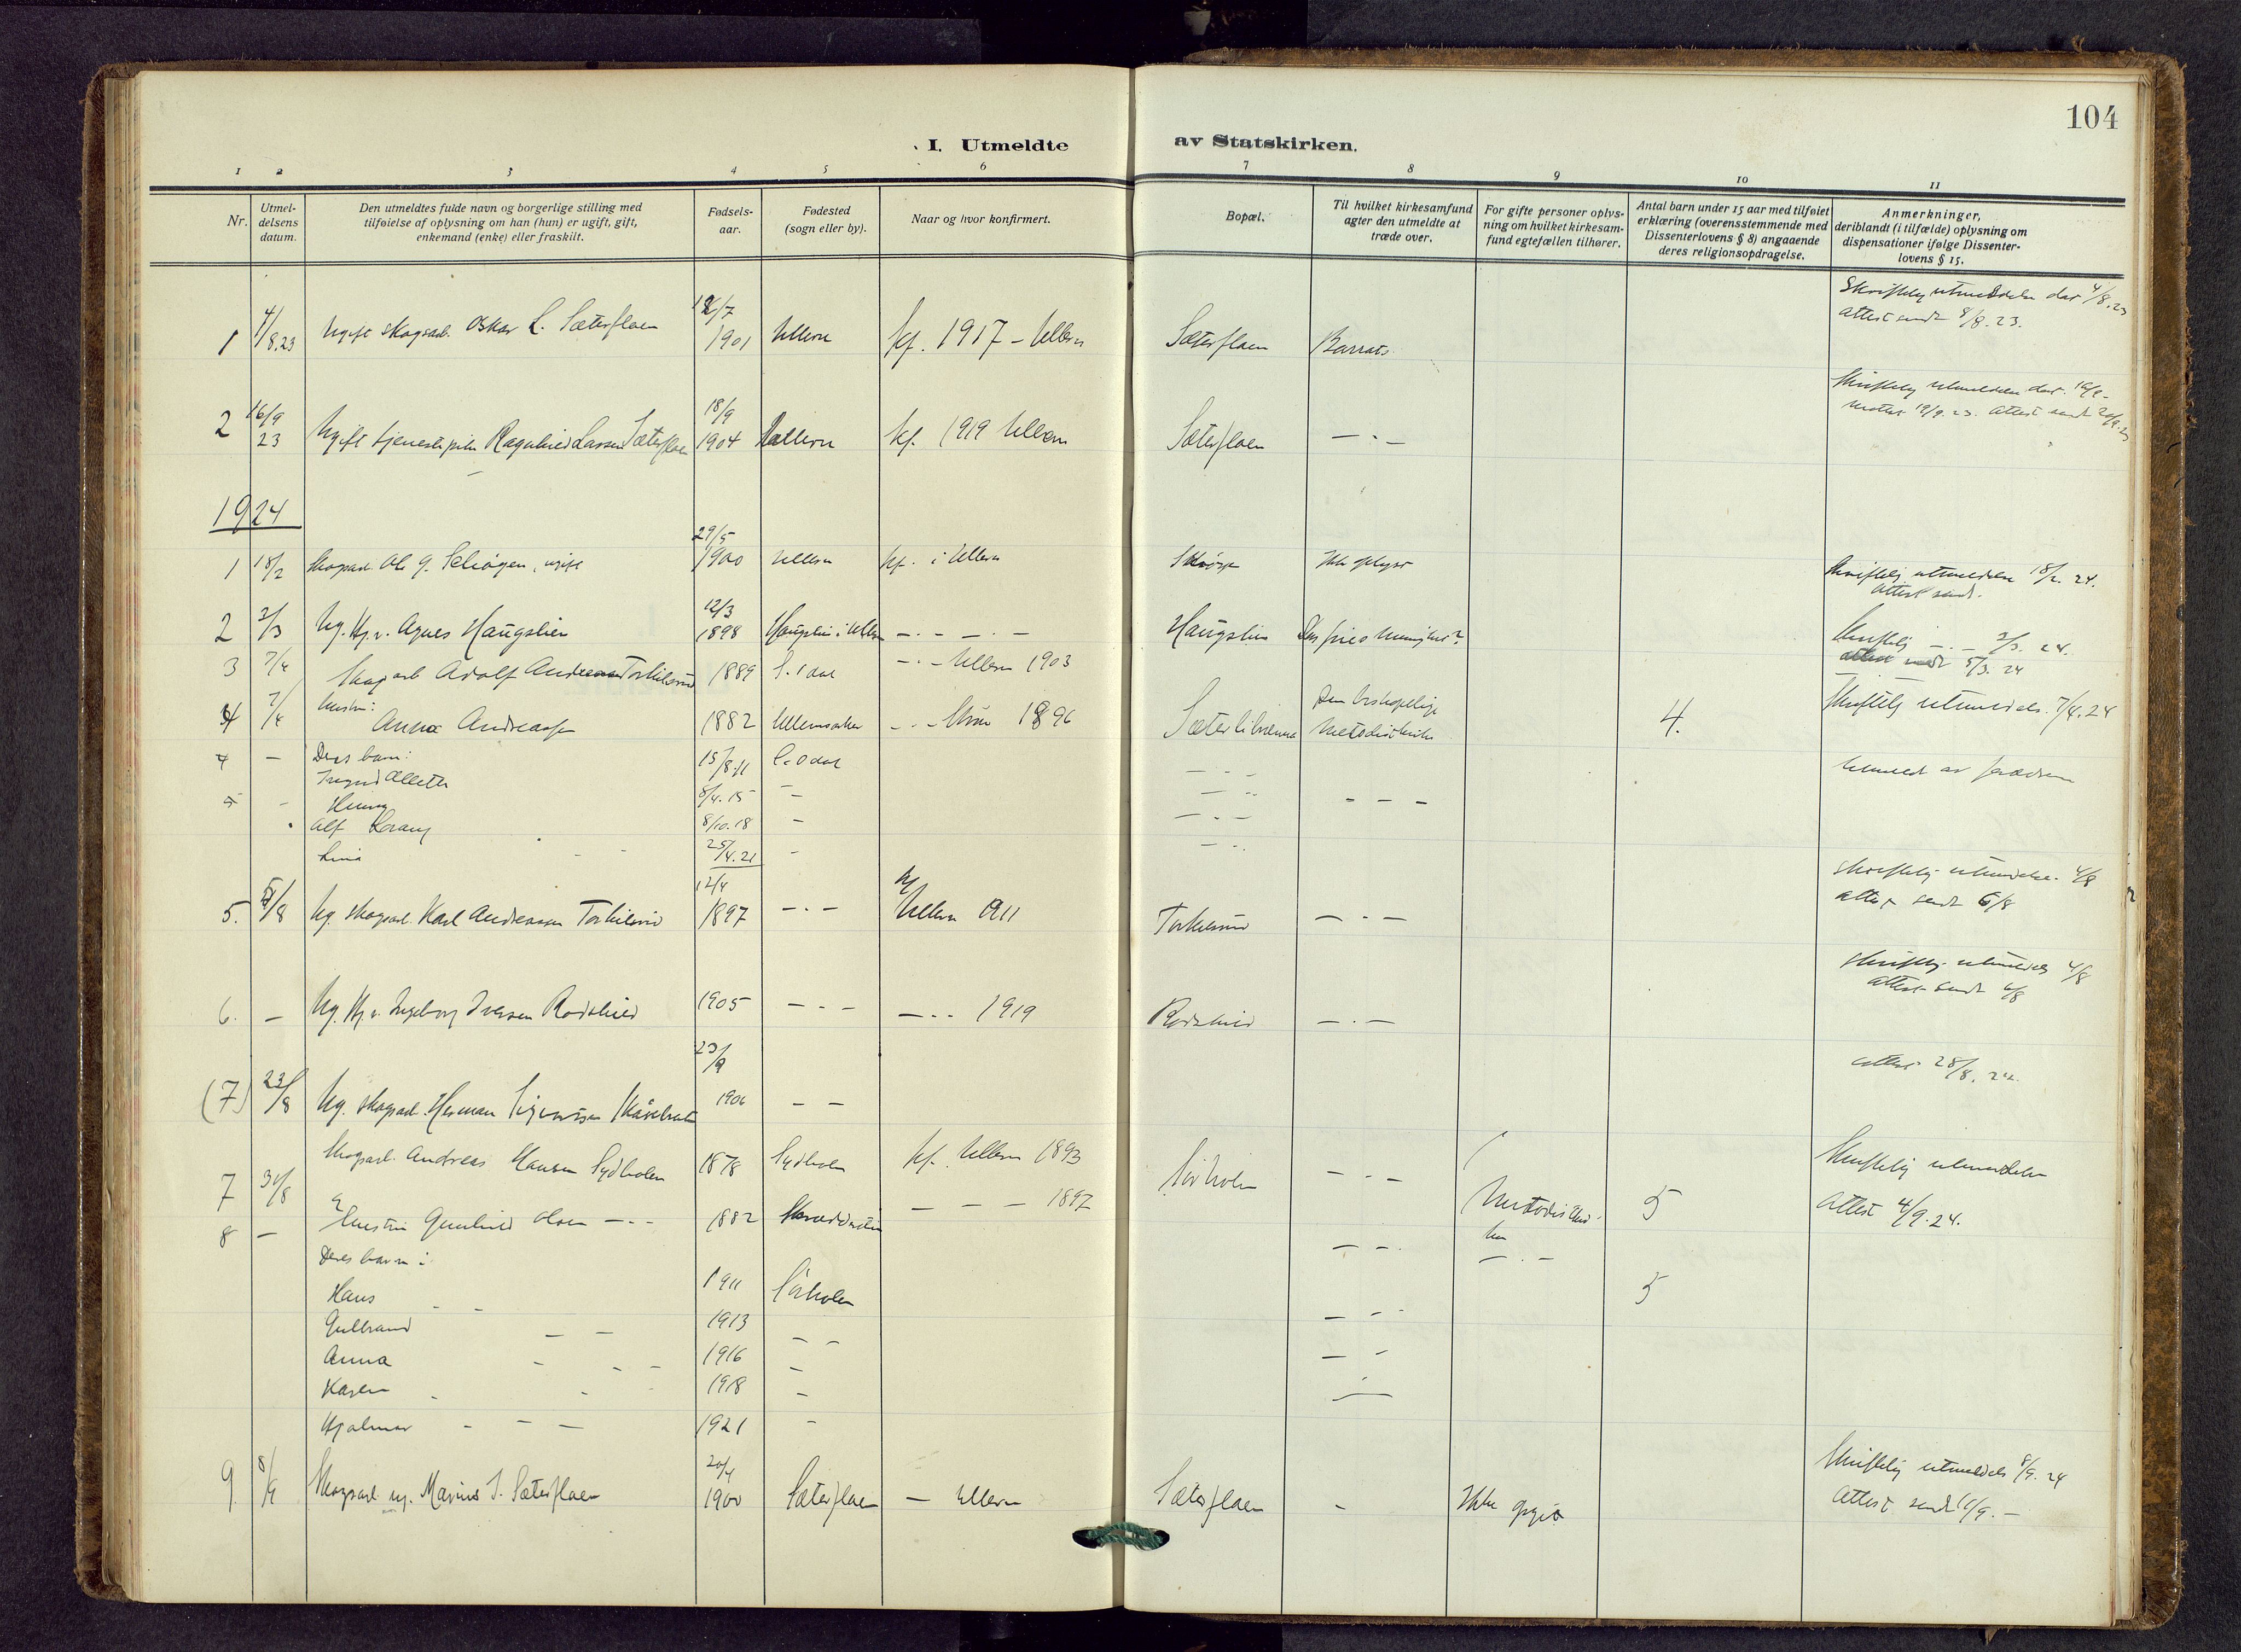 104
I. Utmeldte av Statskirken.
1 2 3 4 5 6 7 8 9 10 11
Nr.
Utmel-
delsens
datum.
Den utmeldtes fulde navn og borgerlige stilling med
tilføielse af oplysning om han (hun) er ugift, gift,
enkemand (enke) eller fraskilt.
Fødsels-
aar.
Fødested
(sogn eller by).
Naar og hvor konfirmert.
Bopæl.
Til hvilket kirkesamfund
agter den utmeldte at
træde over.
For gifte personer oplys-
ning om hvilket kirkesam-
fund egtefællen tilhører.
Antal barn under 15 aar med tilføiet
erklæring (overensstemmende med
Dissenterlovens § 8) angaaende
deres religionsopdragelse.
Anmerkninger,
deriblandt (i tilfælde) oplysning om
dispensationer ifølge Dissenter-
lovens § 15.
1 4/8.23 Ugift skogsarb. Oskar L. Sæterflaen 1901 Ullern kf. 1917 - Ullern Sæterflaen Skriftlig utmeldelse dat 4/8.23
attest sendt 8/8.23.
2 16/9 23 Ugift tjenestepike Ragnhild Larsen Sæterflaen 18/9 1904 Ullern kf. 1919 Ullern Sæterflaen — . — Skriftlig utmeldelse dat. 16/9
mottat 19/9.23. Attest sendt 20/9.23
1924
1 18/2 Skogsarb. Ole G. , ugift 29/5 1900 Ullern kf. i Ullern Ikke oplyst Skriftlig utmeldelse 18/2.24.
Attest sendt.
2 3/3 Ug. Hj.v. Agnes Haugslien 12/3 1898 Haugslien i Ullern — . — . — Haugslien Skriftlig — . — 3/3.24.
attest sendt 5/3.24
3 7/4 Skogarb Adolf Andreassen Torkilsrud 1889 S. Odal — . — Ullern 1903
4 7/4 Hustru:
Anna Andreassen 1882 Ullensaker 1896 Den biskopelige
Metodistkirke 4. Skriftlig utmeldelse 7/4.24
4 — Deres barn:
Ingrid Alette 15/8.11 S. Odal — . — Utmeldt av forældrene
5 - Henny 8/4.15 — — — —
Alf 8/10.18 — — . —
Lina 25/4.21 -
5. 4/8 Ug. skogsarb. Karl Andreassen Torkilsrud 12/4 1897 — . — Ullern 1911 Torkilsrud — . — Skriftlig utmeldelse 4/8
attest sendt 6/8
6. — Ug. Hj.v. Ingeborg Iversen 1905 — . — — . . 1919 — . — Skriftlig utmeldelse 4/8
attest sendt 6/8
(7) 23/8 Ug. skogsarb. Herman 23/9 1906 — — attest 28/8.24.
7 30/8 Skogsarb. Andreas Hansen Sydholen 1878 Sydholen kf. Ullern 1893 Sørholen — . — Metodistkir-
ken 5 Skriftlig utmeldelse
Attest 4/9.24.
8 — Hustru Gunhild Olsen — . . 1882 — — — 1897 — — . — . —
Deres barn:
Hans - - 1911 Sørholen 5
Gulbrand — — 1913 — — — — .
Anna - - — 1916 — — -
Karen - - 1918 -
Hjalmar - — — 1921 -
9. 8/9 Skogsarb. ug. Marius J. Sæterflaen 20/4 1900 Sæterflaen — Ullern Sæterflaen - Ikke opgit Skriftlig utmeldelse 8/9.24
Attest sendt 11/9. —